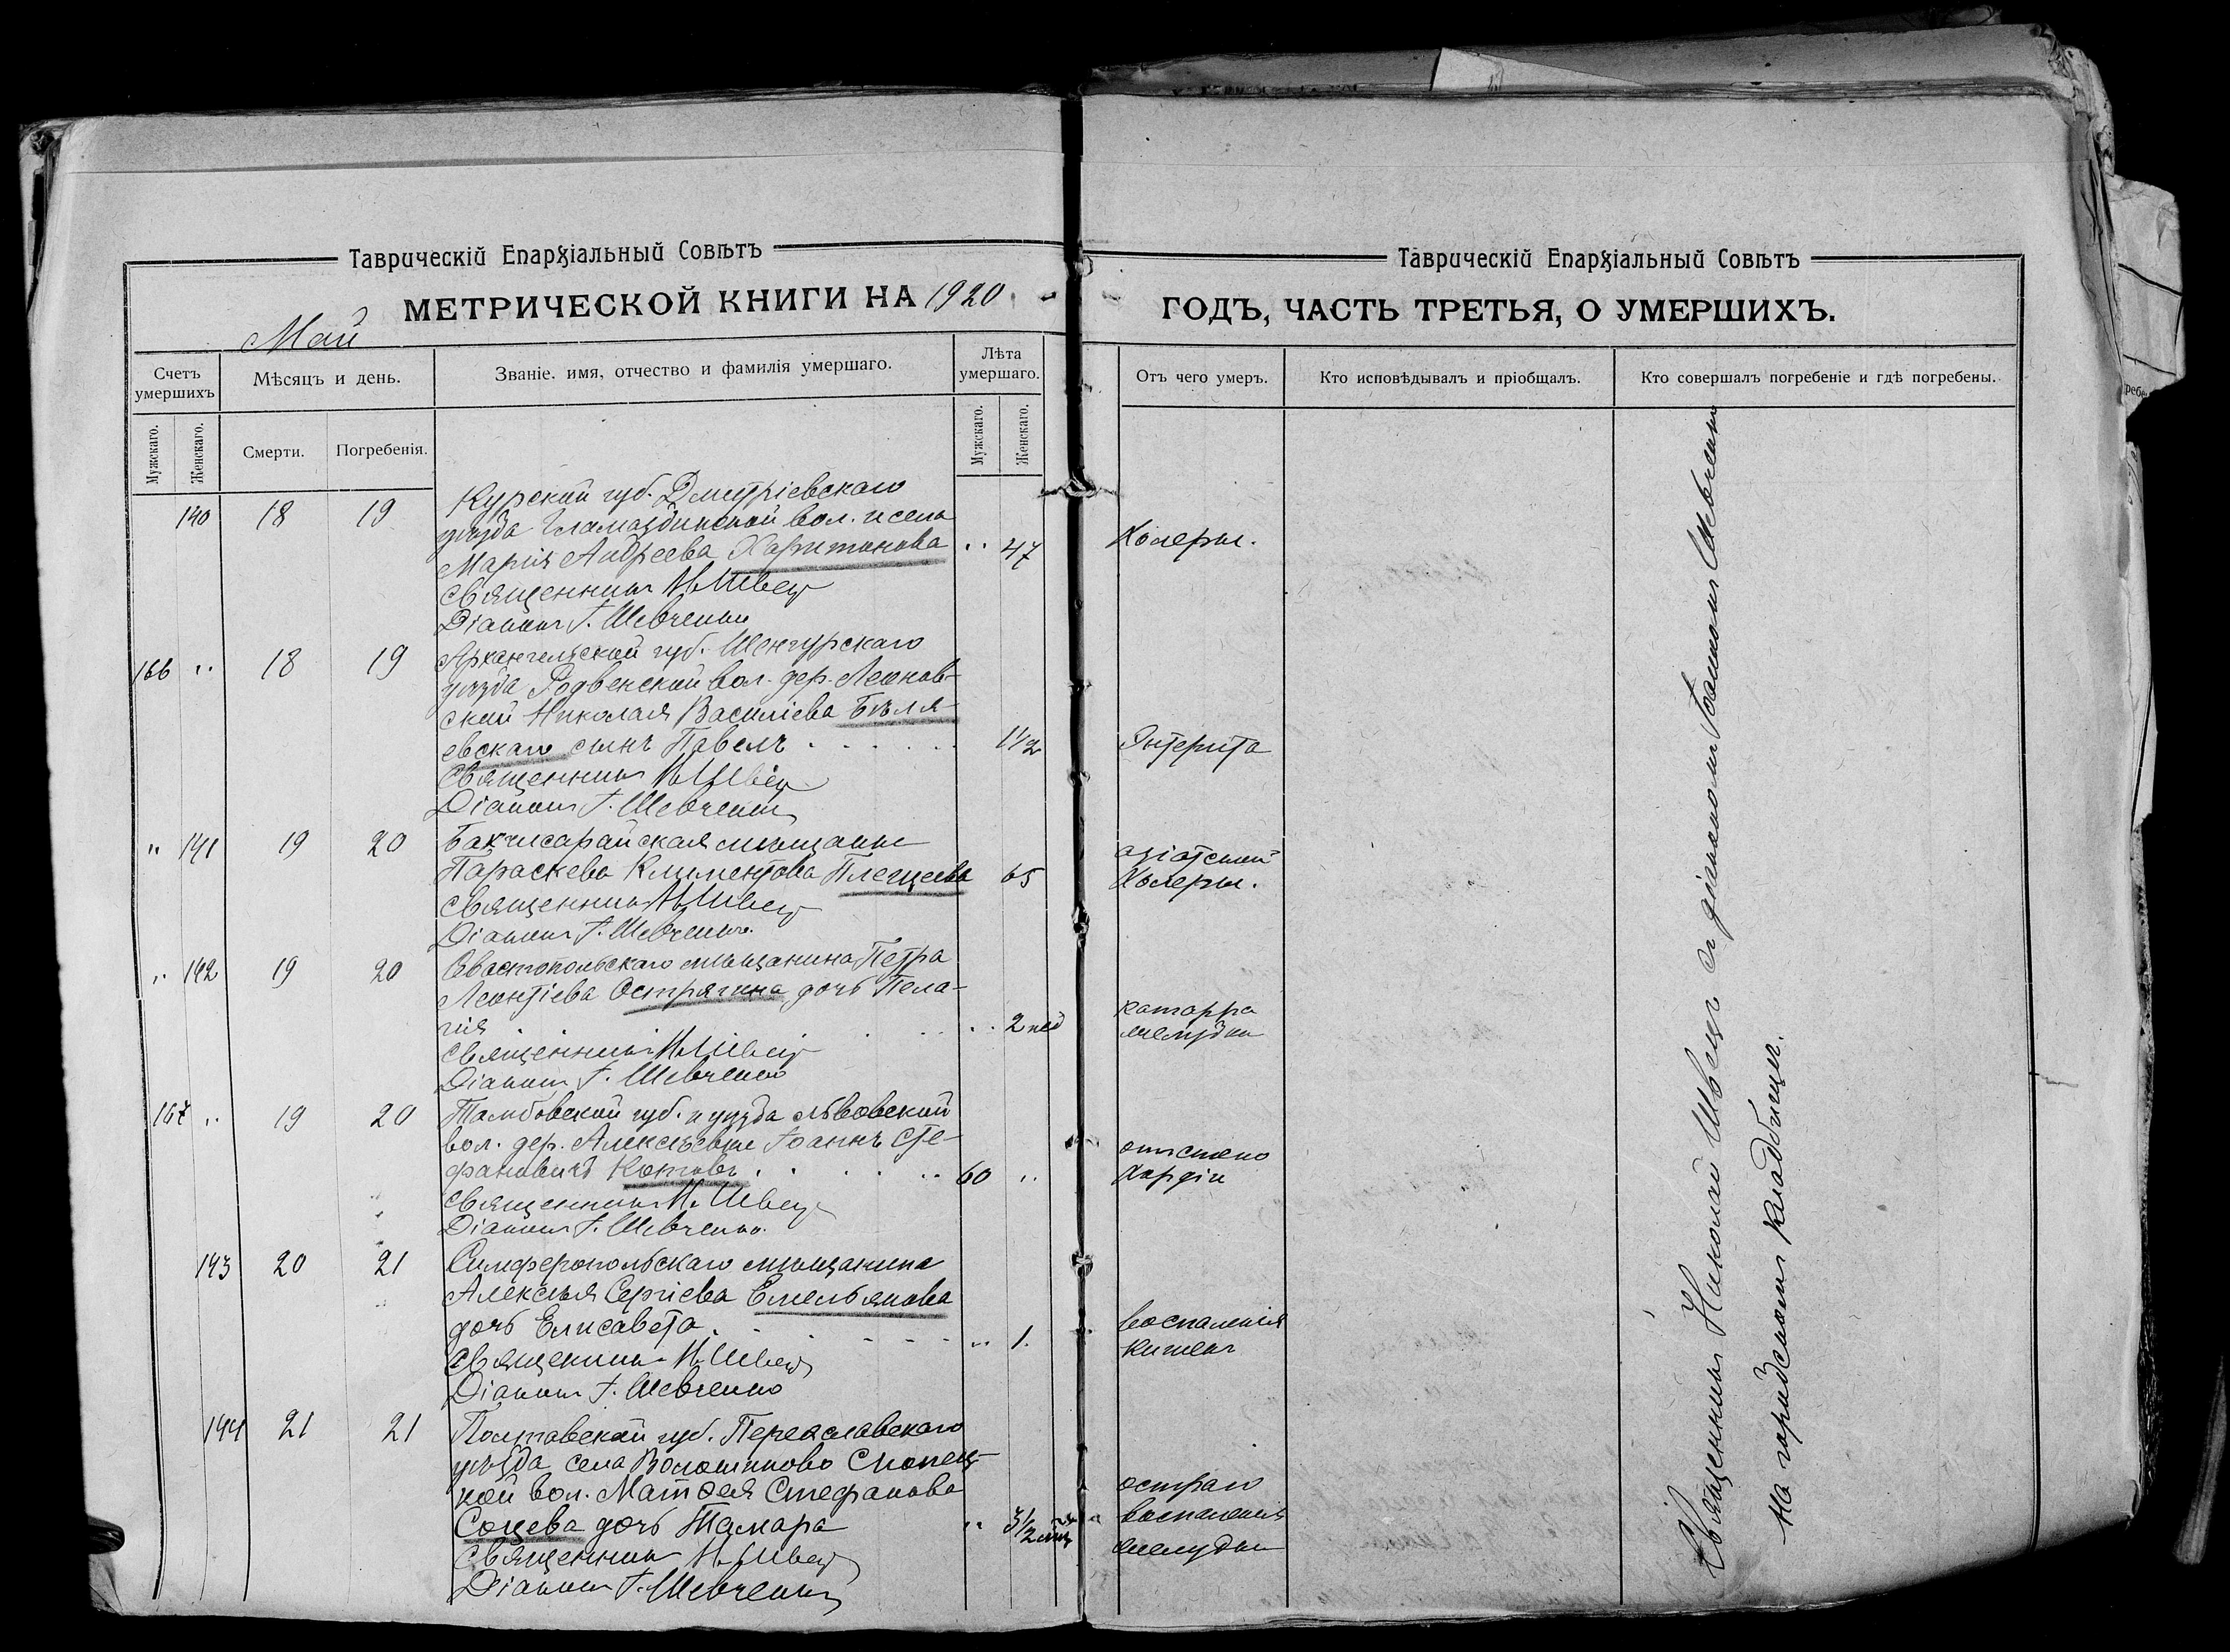 Таврическій Епархіальный Совѣтъ
МЕТРИЧЕСКОЙ КНИГИ НА 1920
Май
Счетъ умершихъ
Мѣсяцъ и день.
Званіе, имя, отчество и фамилія умершаго.
Лѣта умершаго.
Мужскаго.
Женскаго.
Смерти.
Погребенія.
Мужскаго.
Женскаго.
140 18 19 Курской губ. Дмитріевскаго
уѣзда вол. и села
Марія Андреева Харитонова .. 47
Священникъ Н. Швецъ
Діаконъ І. Шевченко
166 .. 18 19 Архангельской губ. Шенкурскаго
уѣзда вол. дер. Леонов-
ской Николая Василіева Бѣля-
евскаго сынъ Павелъ 1 1/2
Священникъ Н. Швецъ
Діаконъ І. Шевченко
" 141 19 20 Бахчисарайская мѣщанка
Параскева Климентова Плещеева 65
Священникъ Н. Швецъ
Діаконъ І. Шевченко.
.. 142 19 20 Севастопольскаго мѣщанина Петра
Леонтіева Острягина дочь Пела-
гія .. 2 нед
Священникъ Н. Швецъ
Діаконъ І. Шевченко
167 .. 19 20 Тамбовской губ. и уѣзда Львовской
вол. дер. Алексѣевки Іоаннъ Сте-
фановичъ Котовъ 60 ..
Священникъ Н. Швецъ
Діаконъ І. Шевченко.
143 20 21 Симферопольскаго мѣщанина
Алексѣя Сергіева Емельянова
дочь Елисавета .. 1.
Священникъ Н. Швецъ
Діаконъ І. Шевченко
144 21 21 Полтавской губ. Переяславскаго
уѣзда села Волошиново
кой вол. Матѳея Стефанова
Соцева дочь Тамара .. 3 1/2 мѣс
Священникъ Н. Швецъ
Діаконъ І. Шевченко
Таврическій Епархіальный Совѣтъ
ГОДЪ, ЧАСТЬ ТРЕТЬЯ, О УМЕРШИХЪ.
Отъ чего умеръ.
Кто исповѣдывалъ и пріобщалъ.
Кто совершалъ погребеніе и гдѣ погребены.
Холеры.
Энтерита
азіатской
Холеры.
катарра
желудка
воспаленія
кишекъ
остраго
воспаленія
желудка
Священникъ Николай Швецъ съ діакономъ Іоанномъ Шевченко
на городскомъ кладбищѣ.